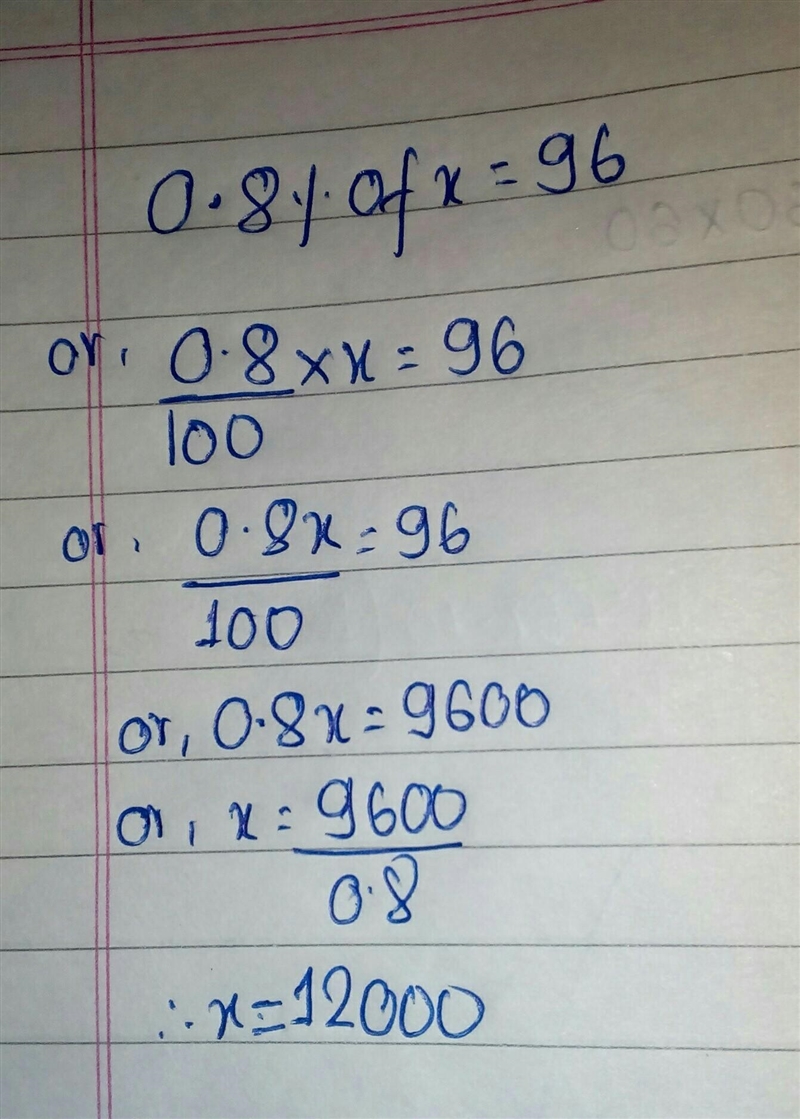 0.8% of x = 96
or, 0.8/100 × x = 96
or, 0.8x/100 = 96
or, 0.8x = 9600
or, x = 9600/0.8
∴ x = 12000